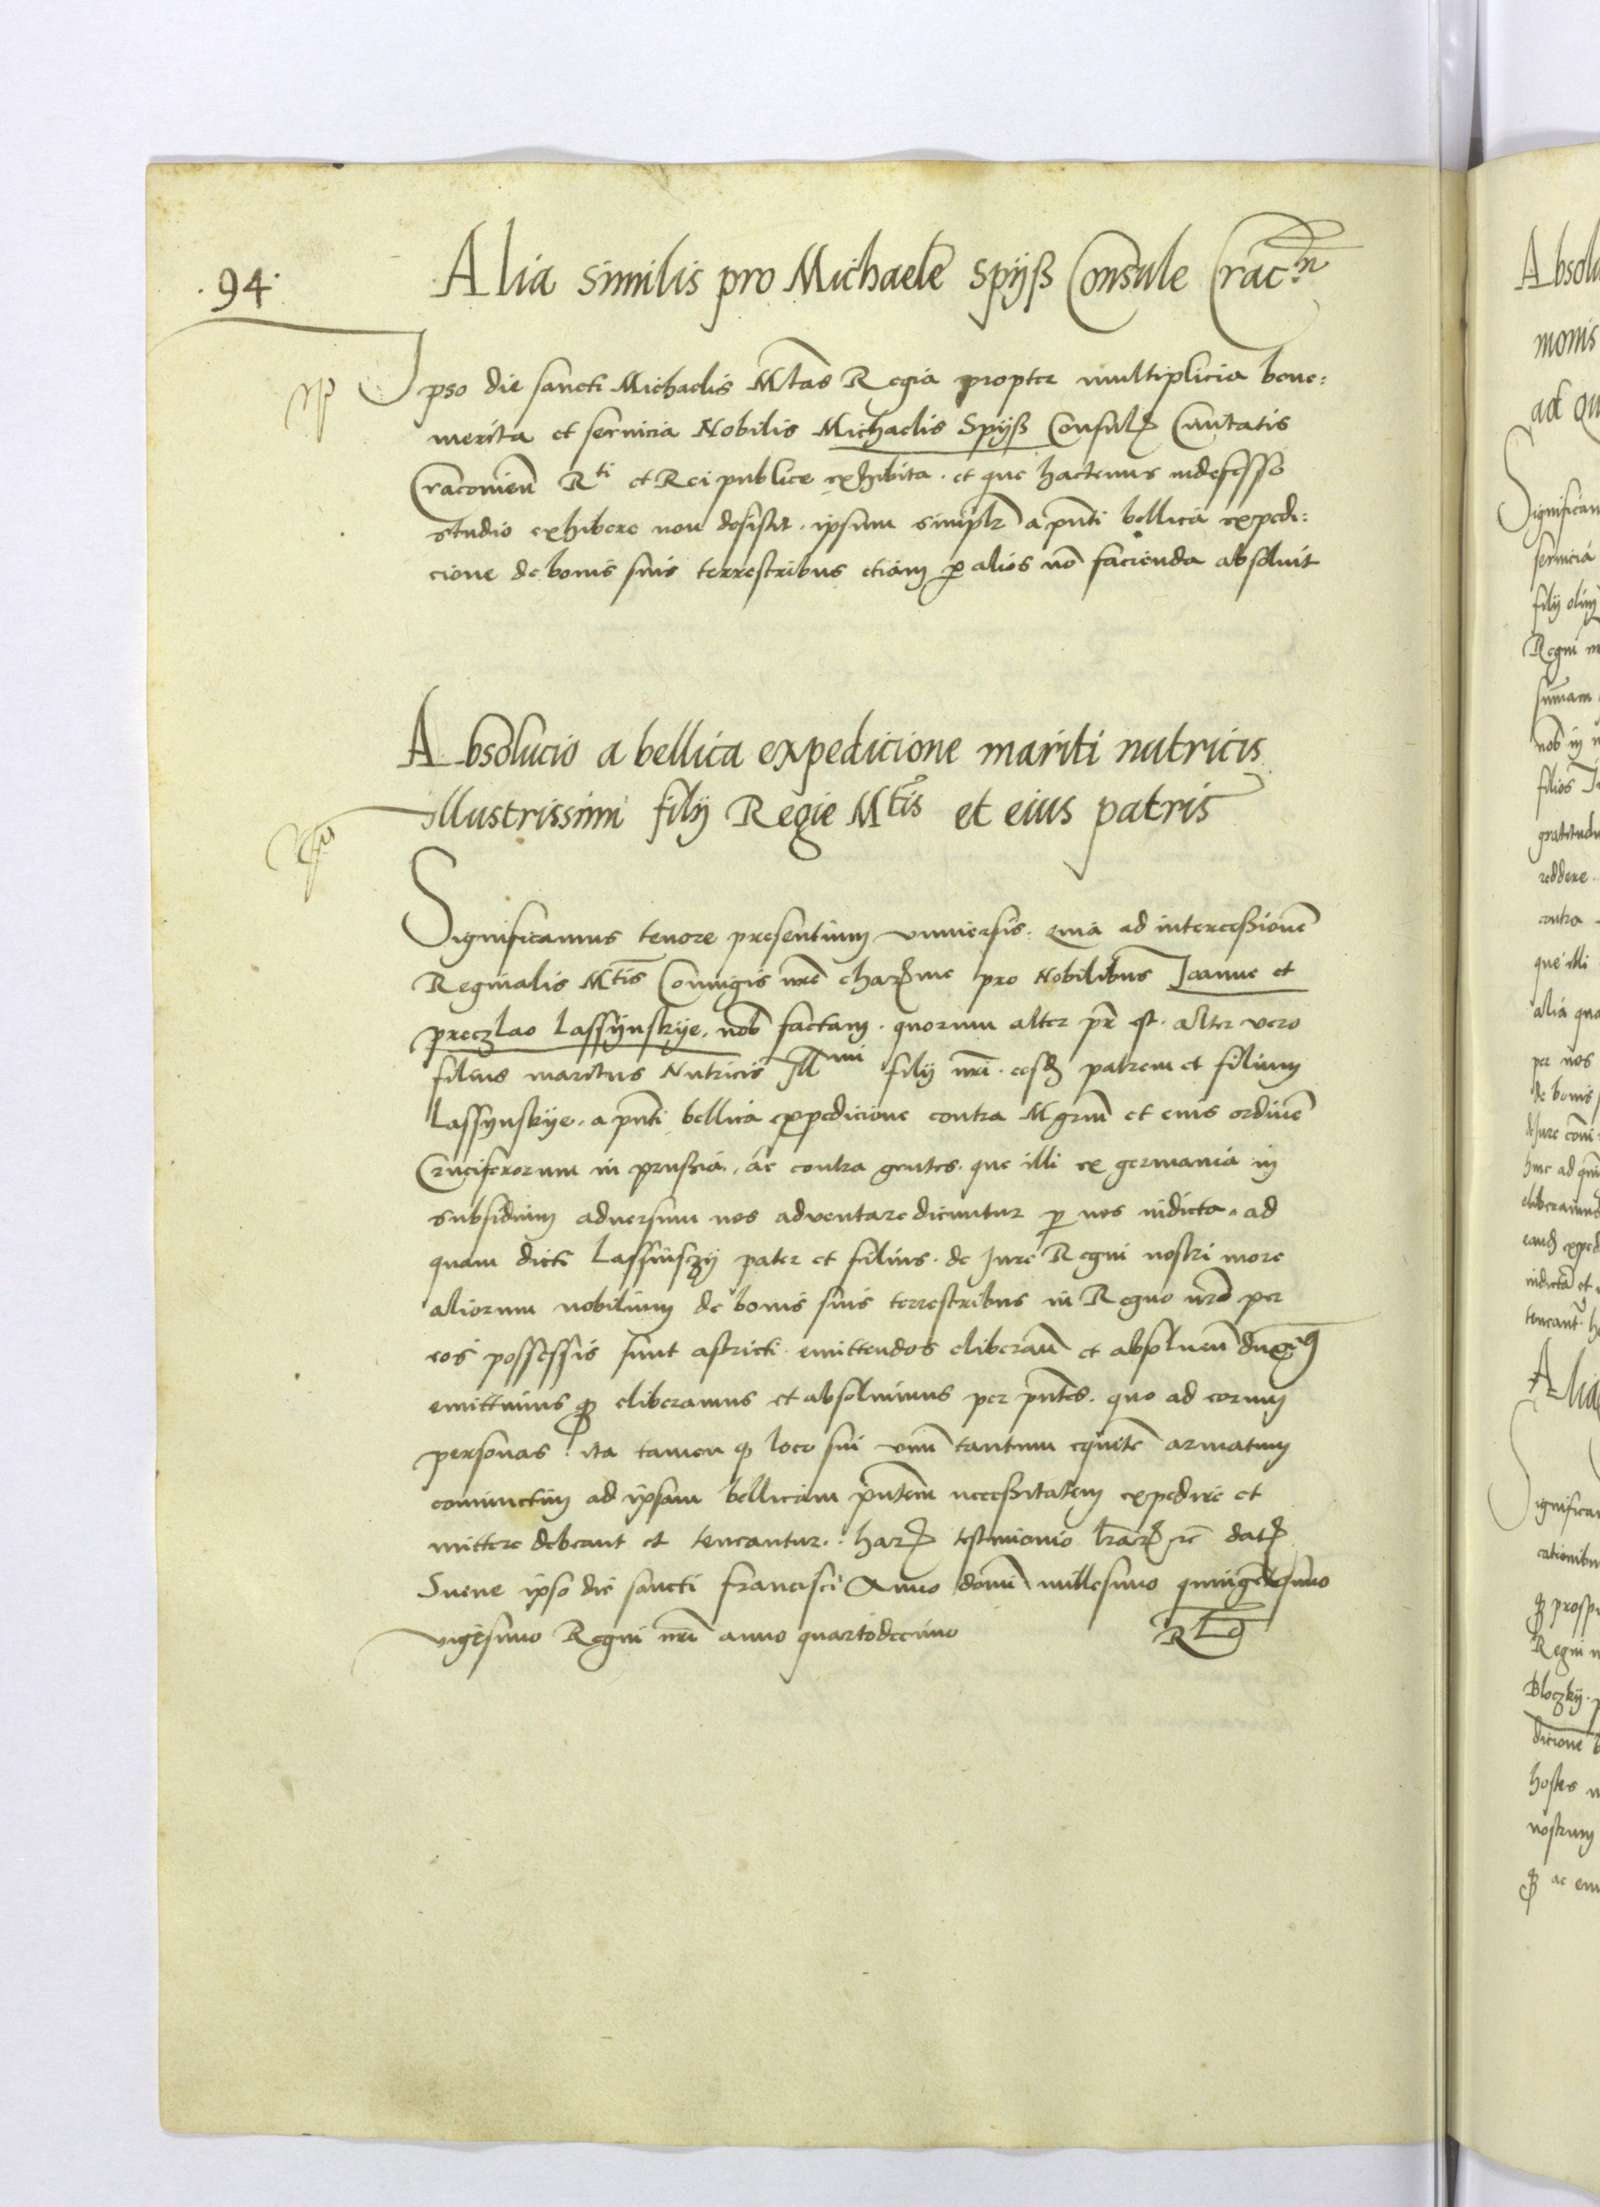 .94.
Alia similis pro Michaele Spÿß Consule Crac.n
Ipso die sancti Michaelis Mtas Regia propter multiplicia bene:
merita et seruicia Nobilis Michaelis Spÿß Consul Ciuitatis
Cracouien Rti et Rei publice exhibita. et que hactenus indefesso
studio exhibere non desistit. ipsum simplr a pnti bellica expedi:
cione de bonis suis terrestribus etiam p alios no facienda absoluit
Absolucio a bellica expedicione mariti nutricis
illustrissimi filÿ Regie Mtis et eius patris
Significamus tenore presentium vniuersis. quia ad intercessione
Reginalis Mtis Coniugis nre char me pro Nobilibus Ioanne et
preczlao Lassÿnskÿe. nob factam. quorum alter pr est. alter vero
filius maritus Nutricis Illmi filÿ nri. eosd patrem et filium
Lassÿnskÿe. a pnti bellica expedicione contra Mgrum et eius ordine
Cruciferorum in prussia. ac contra gentes. que illi ex germania in
subsidium aduersum nos aduentare dicuntur p nos indicta. ad
quam dicti Lassinsczÿ pater et filius. de Jure Regni nostri more
aliorum nobilium de bonis suis terrestribus in Regno nro per
eos possessis sunt astricti. emittendos eliberan et absoluen dux
emittimus q eliberamus et absoluimus per pntes. quo ad eorum
personas. ita tamen q loco sui vnu tantum equite armatum
coniunctim ad ipsam bellicam pntem necessitatem expedire et
mittere debeant et teneantur. har testimonio lrar rc dat
Suene ipso die sancti francisci Anno domi millesimo quingetesimo
vigesimo Regni nri anno quartodecimo